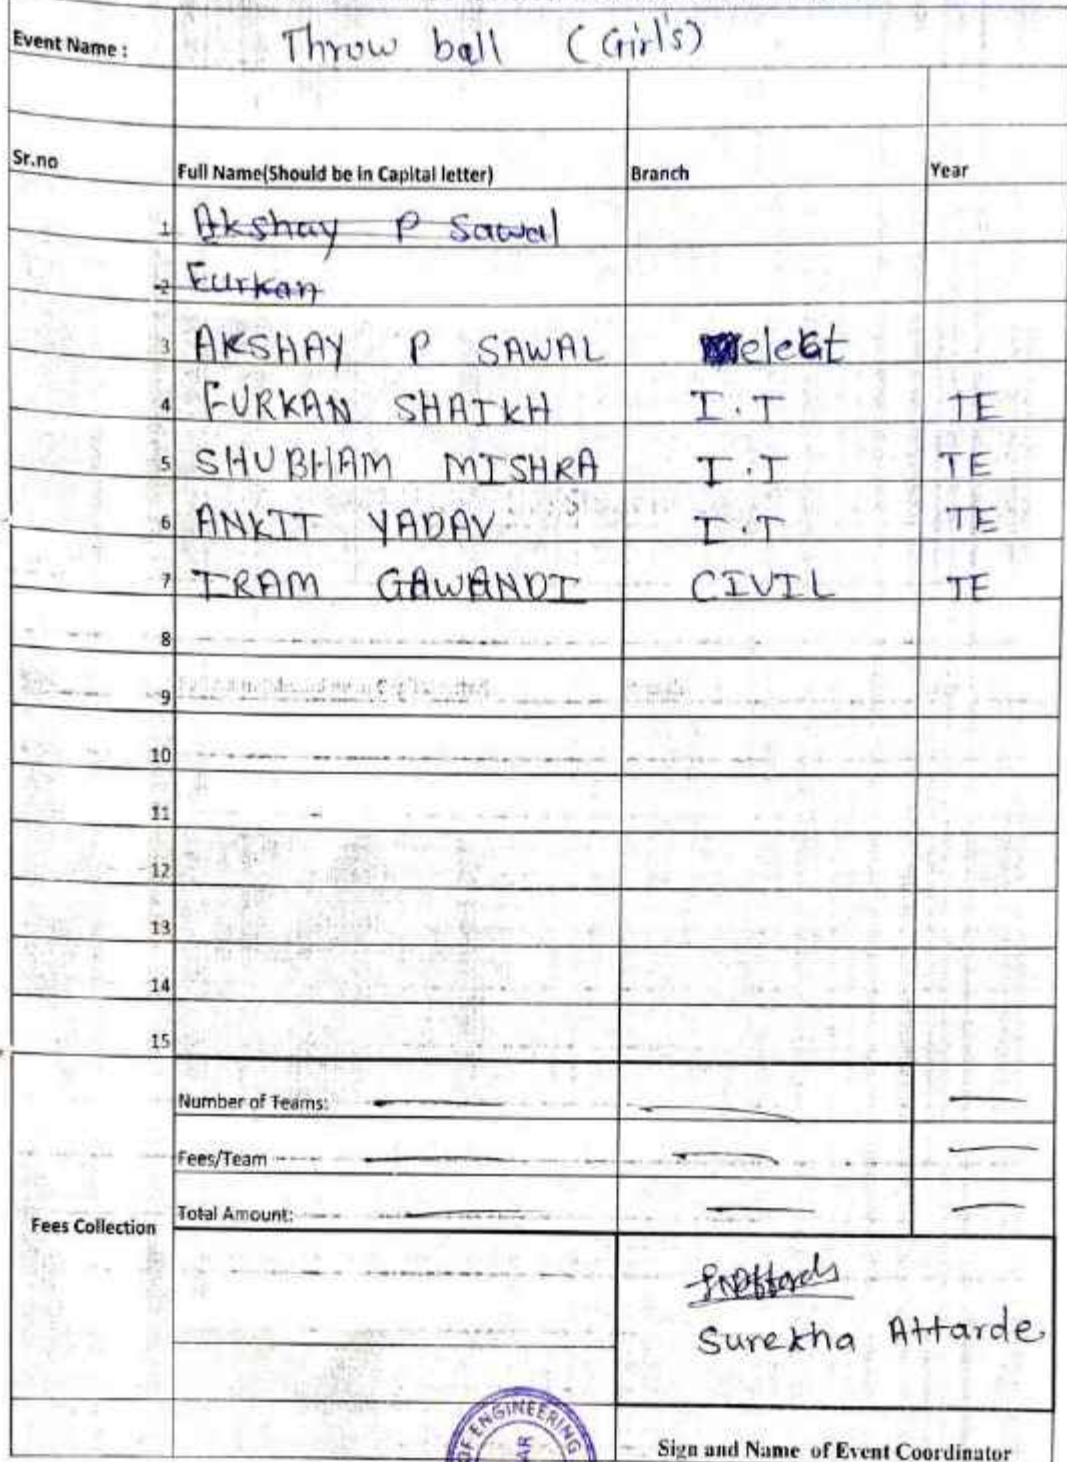 Event Name : Throw ball (Girl's)
Sr.no Full Name(Should be in Capital letter) Branch Year
1 Akshay P Sawal
2 Furkan
3 AKSHAY P SAWAL elect
4 FURKAN SHAIKH I.T TE
5 SHUBHAM MISHRA I.T TE
6 ANKIT YADAV I.T TE
7 IRAM GAWANDI CIVIL TE
8
9
10
11
12
13
14
15
Number of Teams:
Fees/Team
Fees Collection Total Amount:
Surekha Attarde
OF ENGINEERING
Sign and Name of Event Coordinator